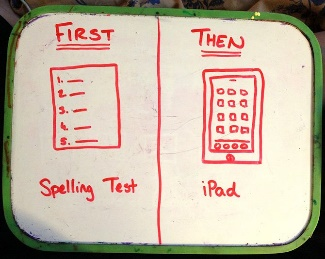 FIRST
1.
2.
3.
4.
5.
Spelling Test
THEN
iPad